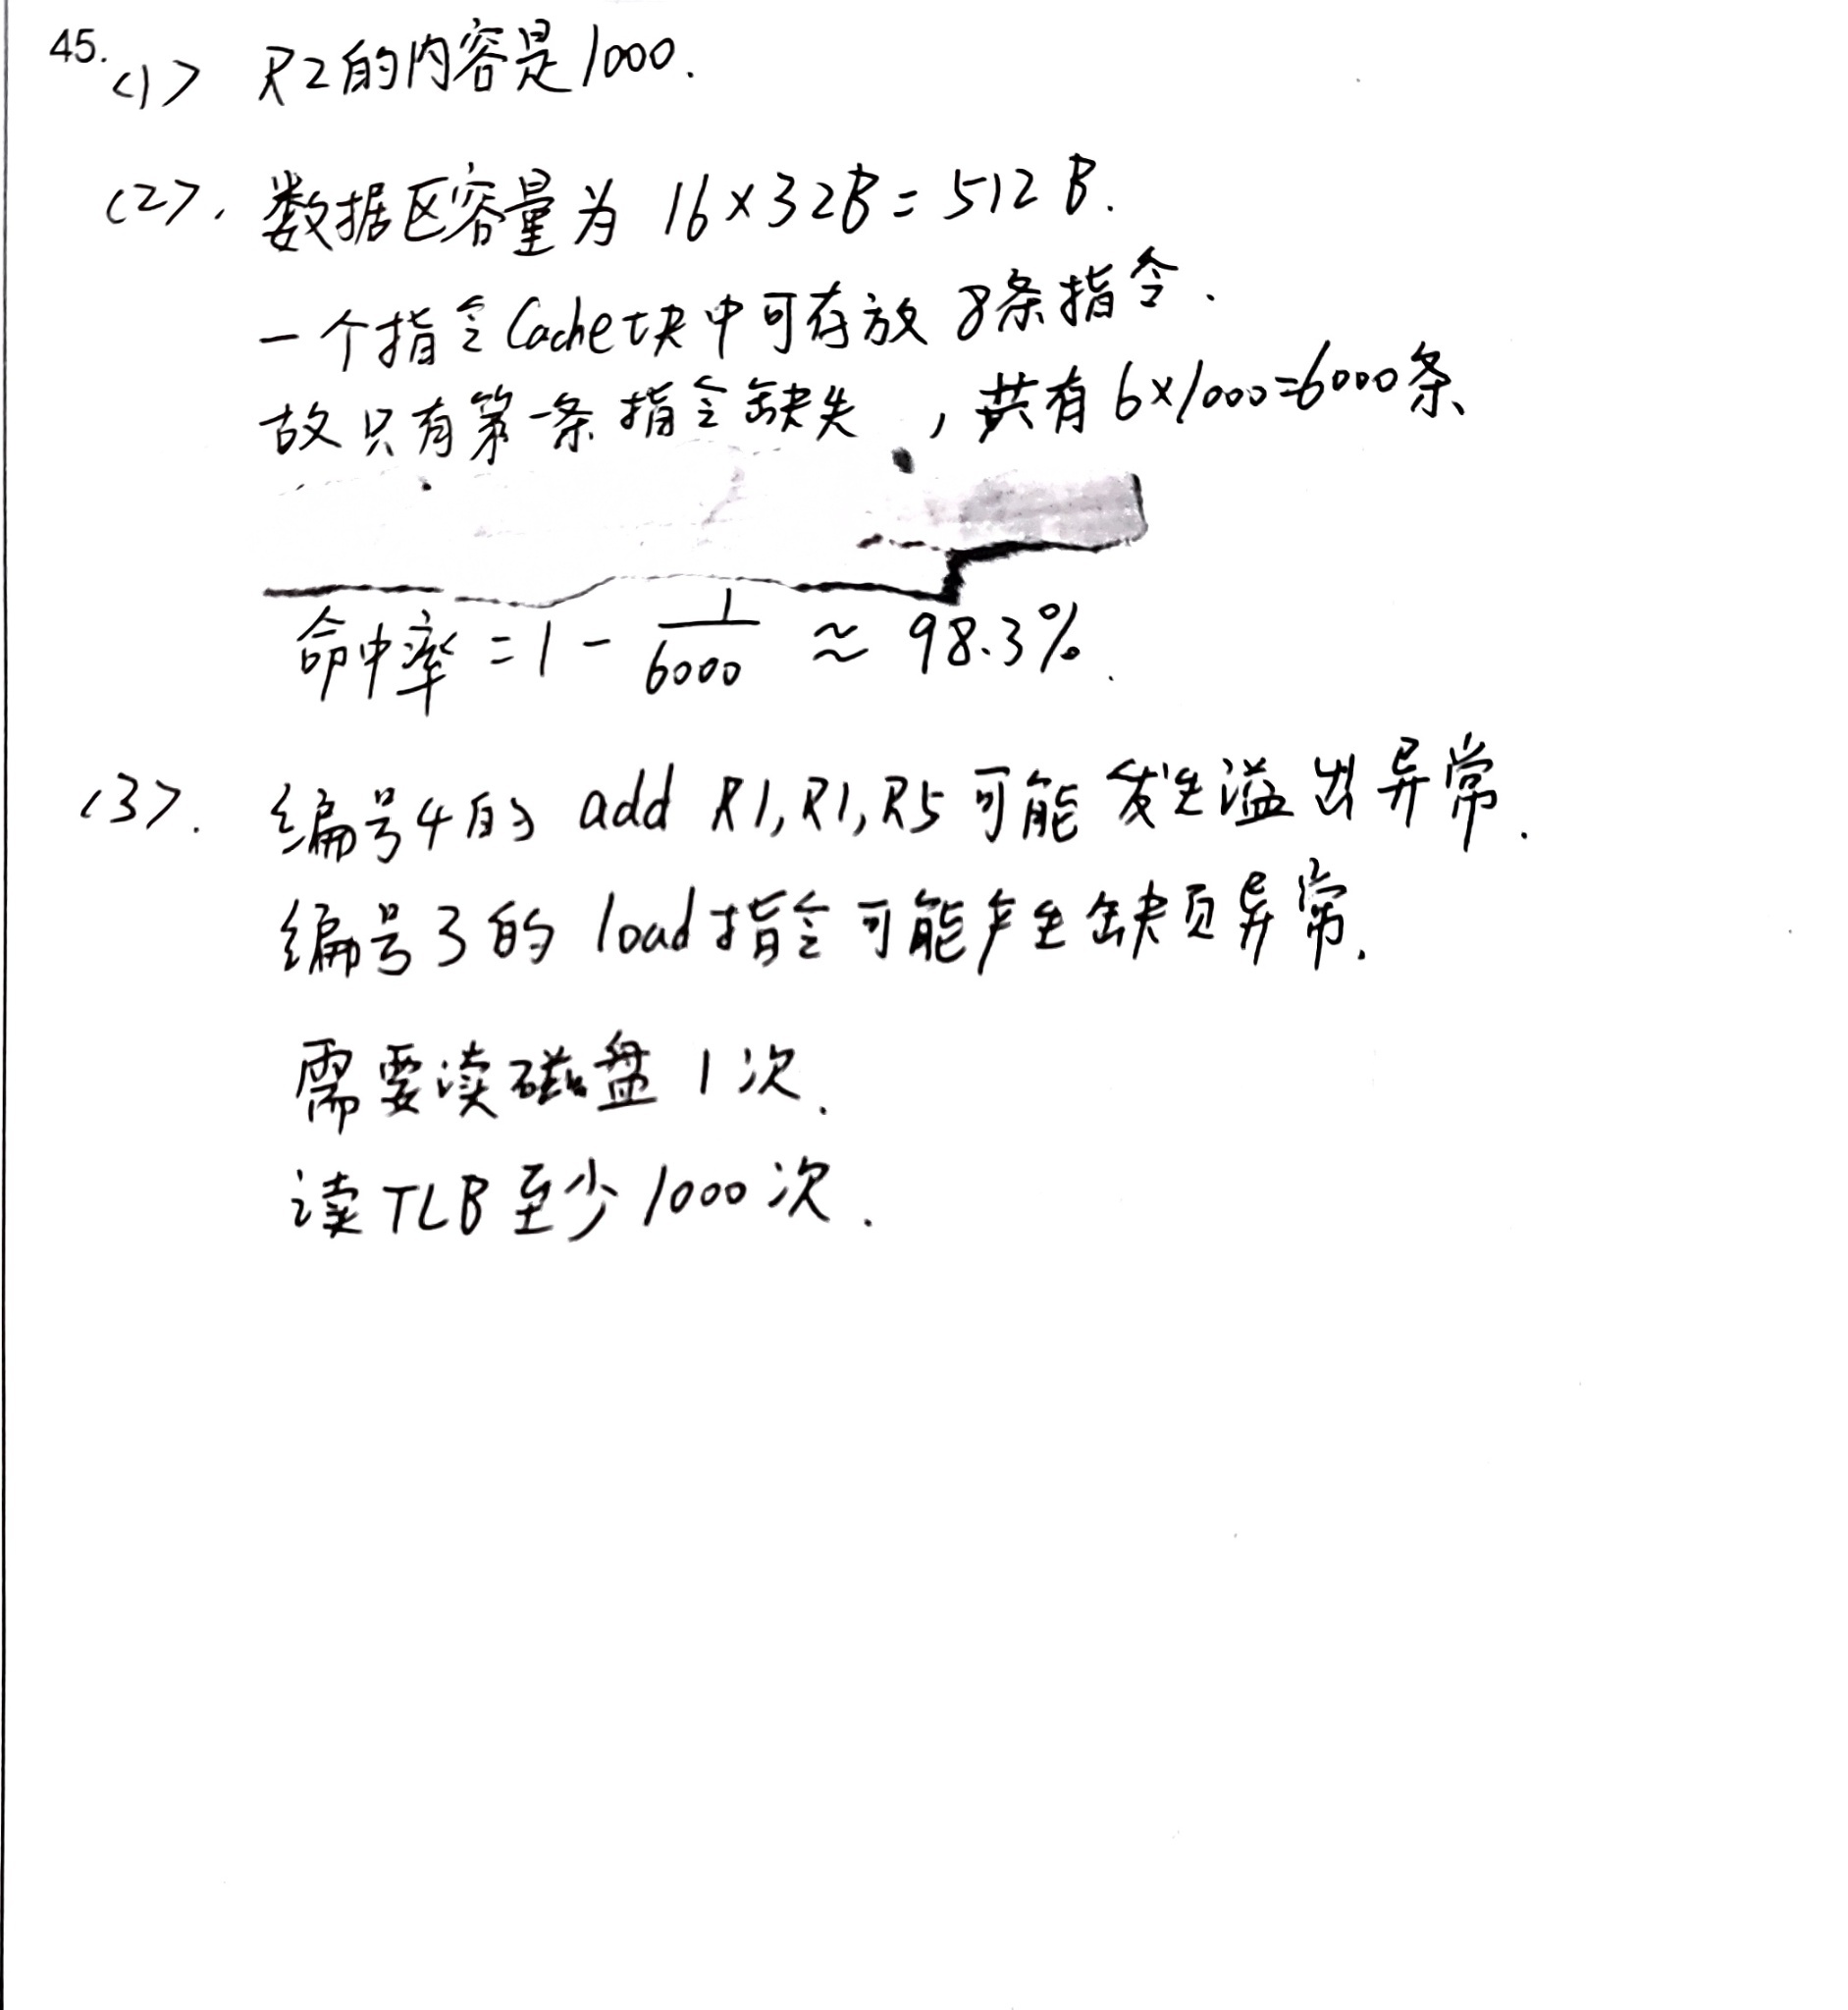 45.
<1> R2的内容是1000.
<2>. 数据区容量为 16×32B=512B.
一个指令Cache块中可存放8条指令.
故只有第一条指令缺失, 共有6×1000=6000条
命中率=1-1/6000≈98.3%.
<3>. 编号4的 add R1,R1,R5可能发生溢出异常.
编号3的 load指令可能产生缺页异常.
需要读磁盘 1次.
读TLB至少1000次.